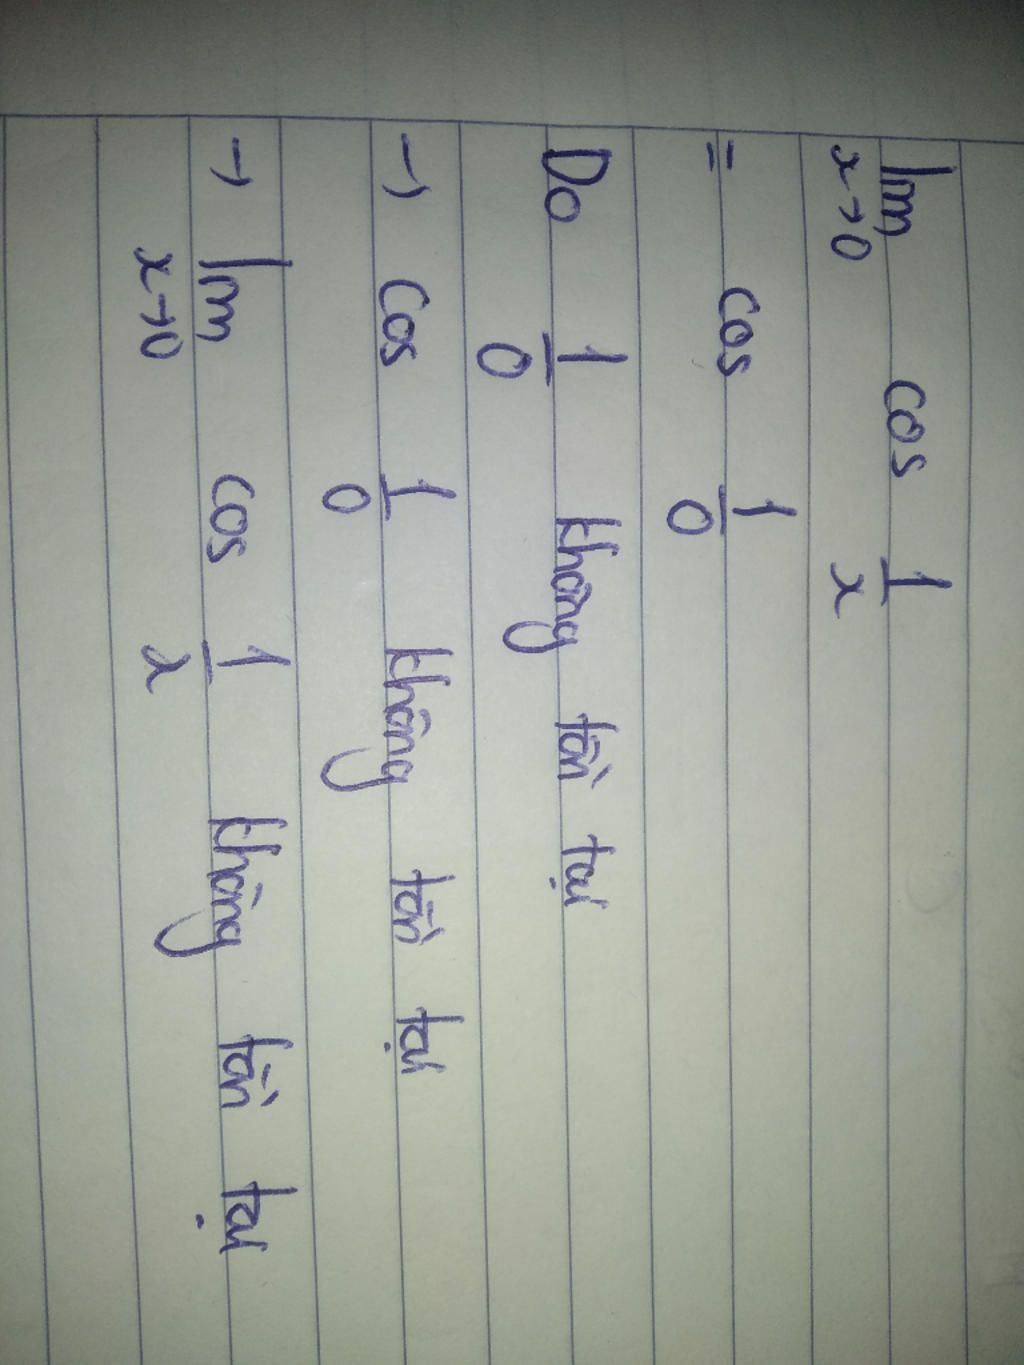 lim cos 1/x
x→0
= cos 1/0
Do 1/0 không tồn tại
→ cos 1/0 không tồn tại
→ lim cos 1/x không tồn tại
x→0